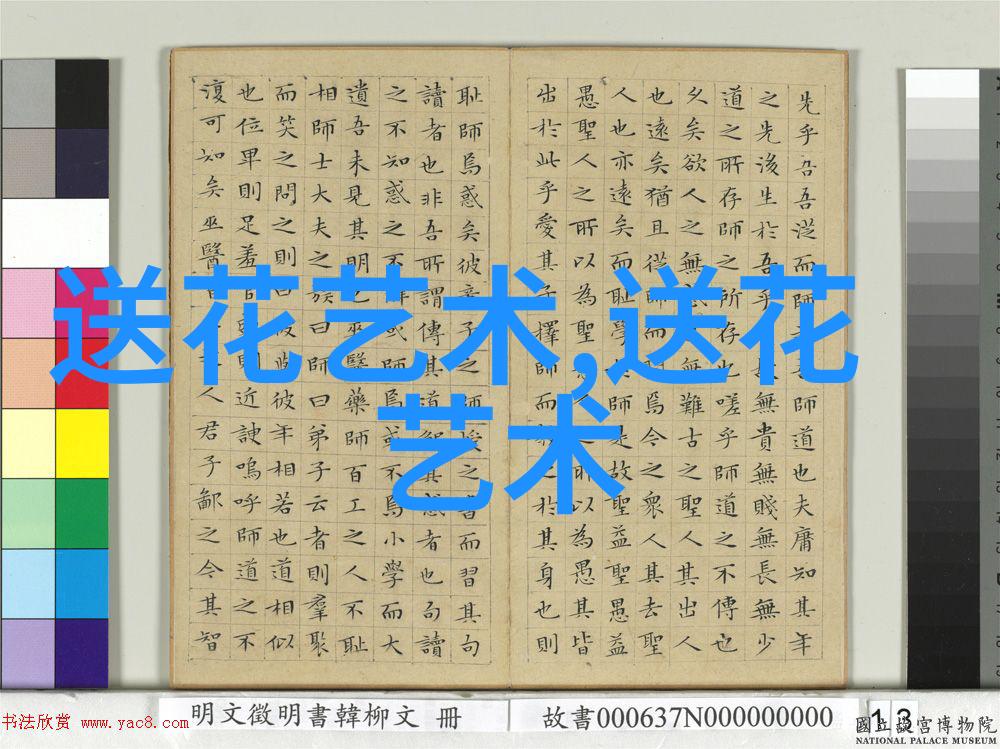 送花艺术,送花
艺术
先乎吾吾從而師師道也夫庸知其年
之先後生於吾乎無貴無賤無長無少
道之所存師之所存也嗟乎師道之不傳也
久矣欲人之無惑無難古之聖人其出人
也遠矣猶且從師而問焉今之衆人其去聖
人也亦遠矣而恥學師是故聖益聖愚益
愚聖人之所以為聖人所以為愚其皆
出於此乎愛其子擇師而之於其身也則
恥師焉惑矣彼童子之師授之書而習其句
讀者也非吾所謂傳其道解其惑者也句讀
之不知惑之不解或師焉或不焉小學而大
遺吾未見其明也巫醫藥師百工之人不恥
相師士大夫之族曰師曰弟子云者則羣聚
而笑之問之則曰彼彼年相若也道相似
也位卑則足羞官則近諛嗚呼師道之不
復可知矣巫醫百人君子鄙之今其智
明文徵明書韓柳文 冊
故書000637N000000000
13
书法欣赏 www.yac8.com
國立故宮博物院
NATIONAL PALACE MUSEUM